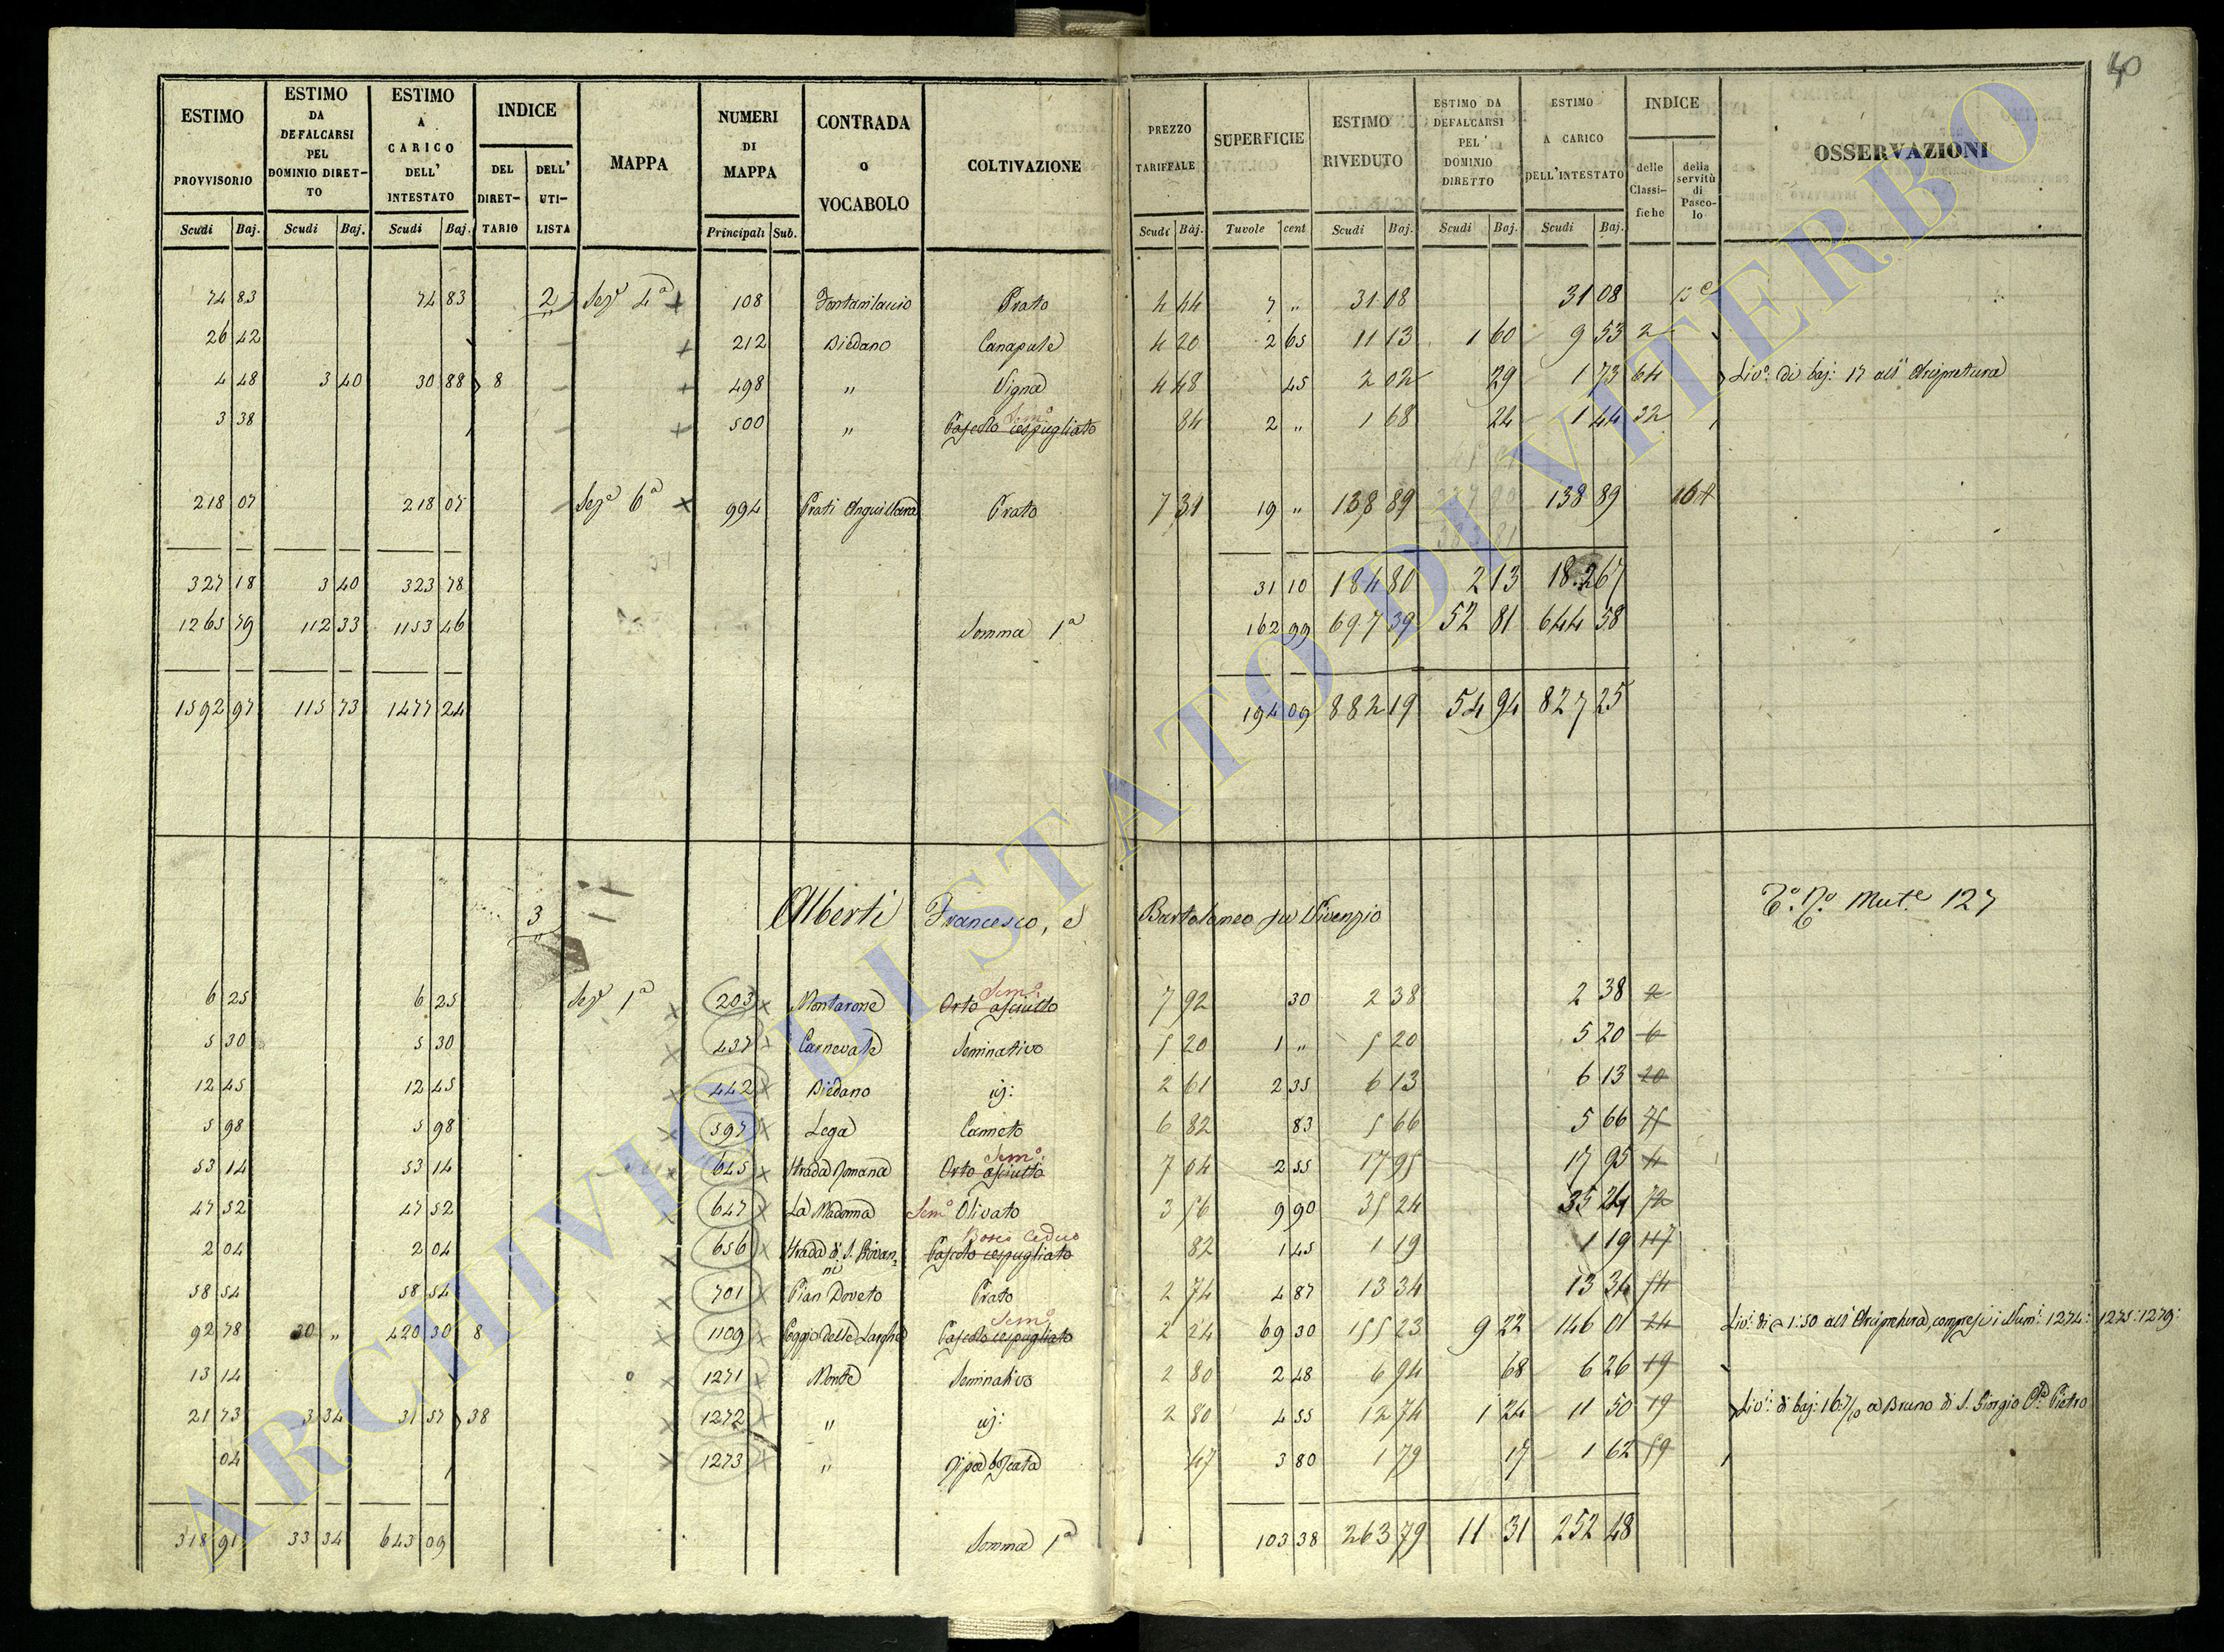 40
ESTIMO PROVVISORIO Scudi Baj.
ESTIMO DA DEFALCARSI PEL DOMINIO DIRETTO Scudi Baj.
ESTIMO A CARICO DELL' INTESTATO Scudi Baj.
INDICE DEL DIRETTARIO DELL' UTILISTA
MAPPA
NUMERI DI MAPPA Principali Sub.
CONTRADA o VOCABOLO
COLTIVAZIONE
PREZZO TARIFFALE Scudi Baj.
SUPERFICIE Tavole cent
ESTIMO RIVEDUTO Scudi Baj.
ESTIMO DA DEFALCARSI PEL' DOMINIO DIRETTO Scudi Baj.
ESTIMO A CARICO DELL'INTESTATO Scudi Baj.
INDICE delle Classifiche della servitù di Pascolo
OSSERVAZIONI
74 83 74 83 2 Sez.e 4a 108 Prato 4 44 7 " 31 08 31 08
26 42 212 Biedano Canapule 4 20 2 65 11 13 1 60 9 53 2
4 48 3 40 30 88 8 498 " Vigna 4 48 45 2 02 29 1 73 64 Liv.o di baj: 17 all' Arcipretura
3 38 500 " Sem.o Pascolo cespugliato 84 2 " 1 68 24 1 44 32
218 07 218 07 Sez.e 6a 994 Prati Anguillara Prato 7 31 19 " 138 89 138 89
327 18 3 40 323 78 31 10 184 80 2 13 182 67
1265 79 112 33 1153 46 Somma 1a 162 99 697 39 52 81 644 58
1592 97 115 73 1477 24 194 09 882 19 54 94 827 25
3 Alberti Francesco, e Bartolomeo fu Vivenzio Mut.e 127
6 25 6 25 Sez.e 1a 203 Montarone Sem.o Orto asciutto 7 92 30 2 38 2 38 2
5 30 5 30 437 Carnevale Seminativo 5 20 1 " 5 20 5 20 6
12 45 12 45 442 Biedano id: 2 61 2 35 6 13 6 13 20
5 98 5 98 597 Lega Canneto 6 82 83 5 66 5 66
53 14 53 14 645 Strada Romana Sem.o Orto asciutto 7 04 2 55 17 95 17 95 4
47 52 47 52 647 La Madonna Sem.o Olivato 3 56 9 90 35 24 35 24 72
2 04 2 04 656 Strada di S. Giovanni Bosco Ceduo Pascolo cespugliato 82 1 45 1 19 1 19 47
58 54 58 54 701 Pian Doveto Prato 2 74 4 87 13 34 13 34 54
92 78 30 " 420 30 8 1109 Poggio delle Sem.o Pascolo cespugliato 2 24 69 30 155 23 9 22 146 01 24 Liv.o di 1:50 all' Arcipretura, compresi i Num.i 1274: 1275: 1279:
13 14 1271 Monte Seminativo 2 80 2 48 6 94 68 6 26 19
21 73 3 34 31 57 38 1272 " id: 2 80 4 55 12 74 1 24 11 50 19 Liv.o di baj: 16 7/10 a Bruno di S. Giorgio Pietro
04 1273 " Ripa boscata 47 3 80 1 79 17 1 62 59
318 91 33 34 643 09 Somma 1a 103 38 263 79 11 31 252 48
ARCHIVIO DI STATO DI VITERBO